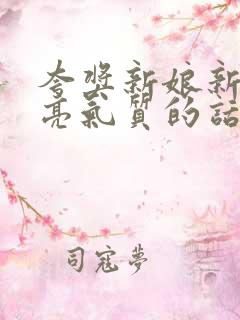 夸奖新娘新
亮气质的话
司寇夢